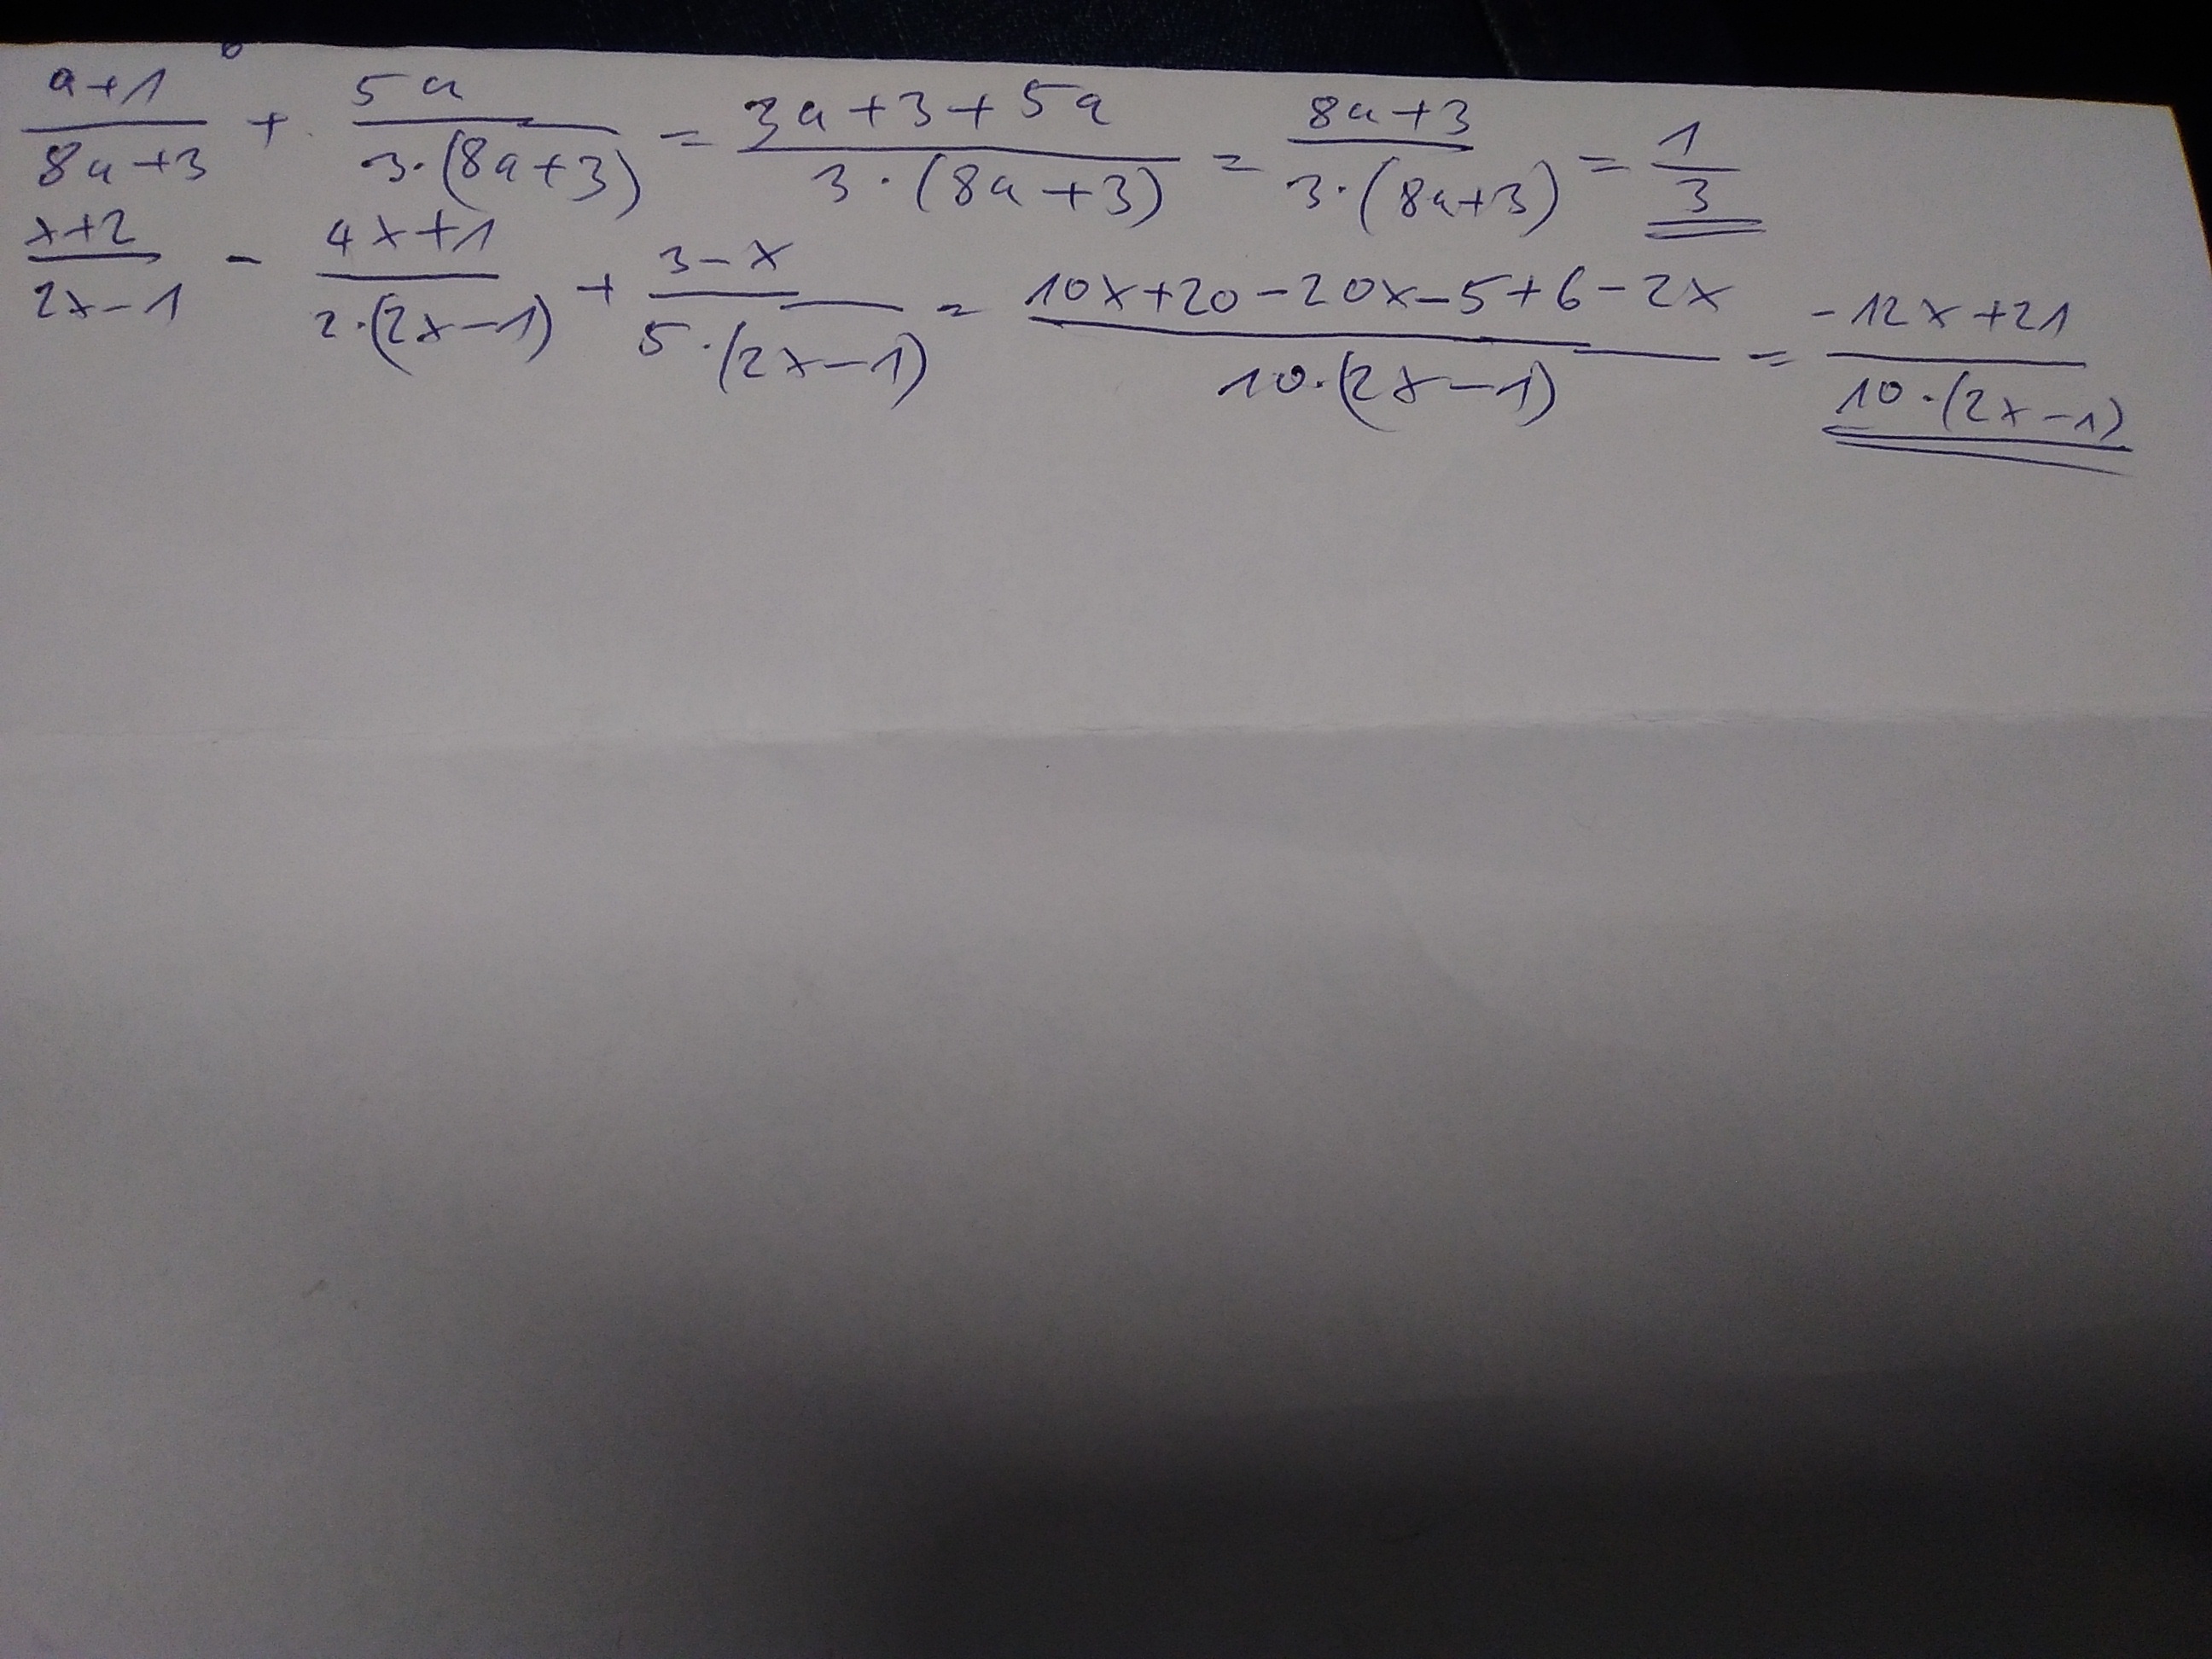 (a+1)/(8a+3) + 5a/(3·(8a+3)) = (3a+3+5a)/(3·(8a+3)) = (8a+3)/(3·(8a+3)) = 1/3
(x+2)/(2x-1) - (4x+1)/(2·(2x-1)) + (3-x)/(5·(2x-1)) = (10x+20-20x-5+6-2x)/(10·(2x-1)) = (-12x+21)/(10·(2x-1))